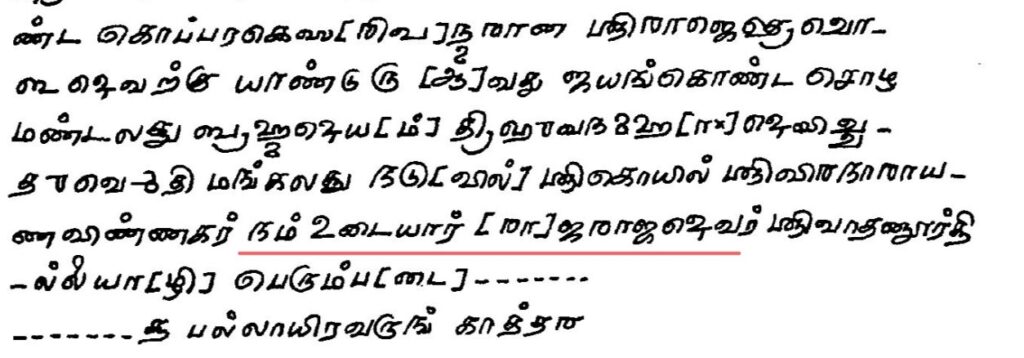 ண்ட கொப்பரகெஸ[ரிவ]ந்மரான ஸ்ரீராஜெந்த்ர சொ-
ழ தெவற்கு யாண்டு ௫ [ஆ]வது ஜயங்கொண்ட சொழ
மண்டலத்து ப்ரஹ்மதெய[ம்] த்ரிபுவநமஹ[ா]தெவிச்ச-
துவெதி மங்கலத்து நடு[வில்] ஸ்ரீகொயில் ஸ்ரீவீரநாராய-
ணவிண்ணகர் நம் உடையார் [ரா]ஜராஜதெவர்
-ல்லியா[ழி] பெரும்ப[டை]-------
------- த பல்லாயிரவருங்